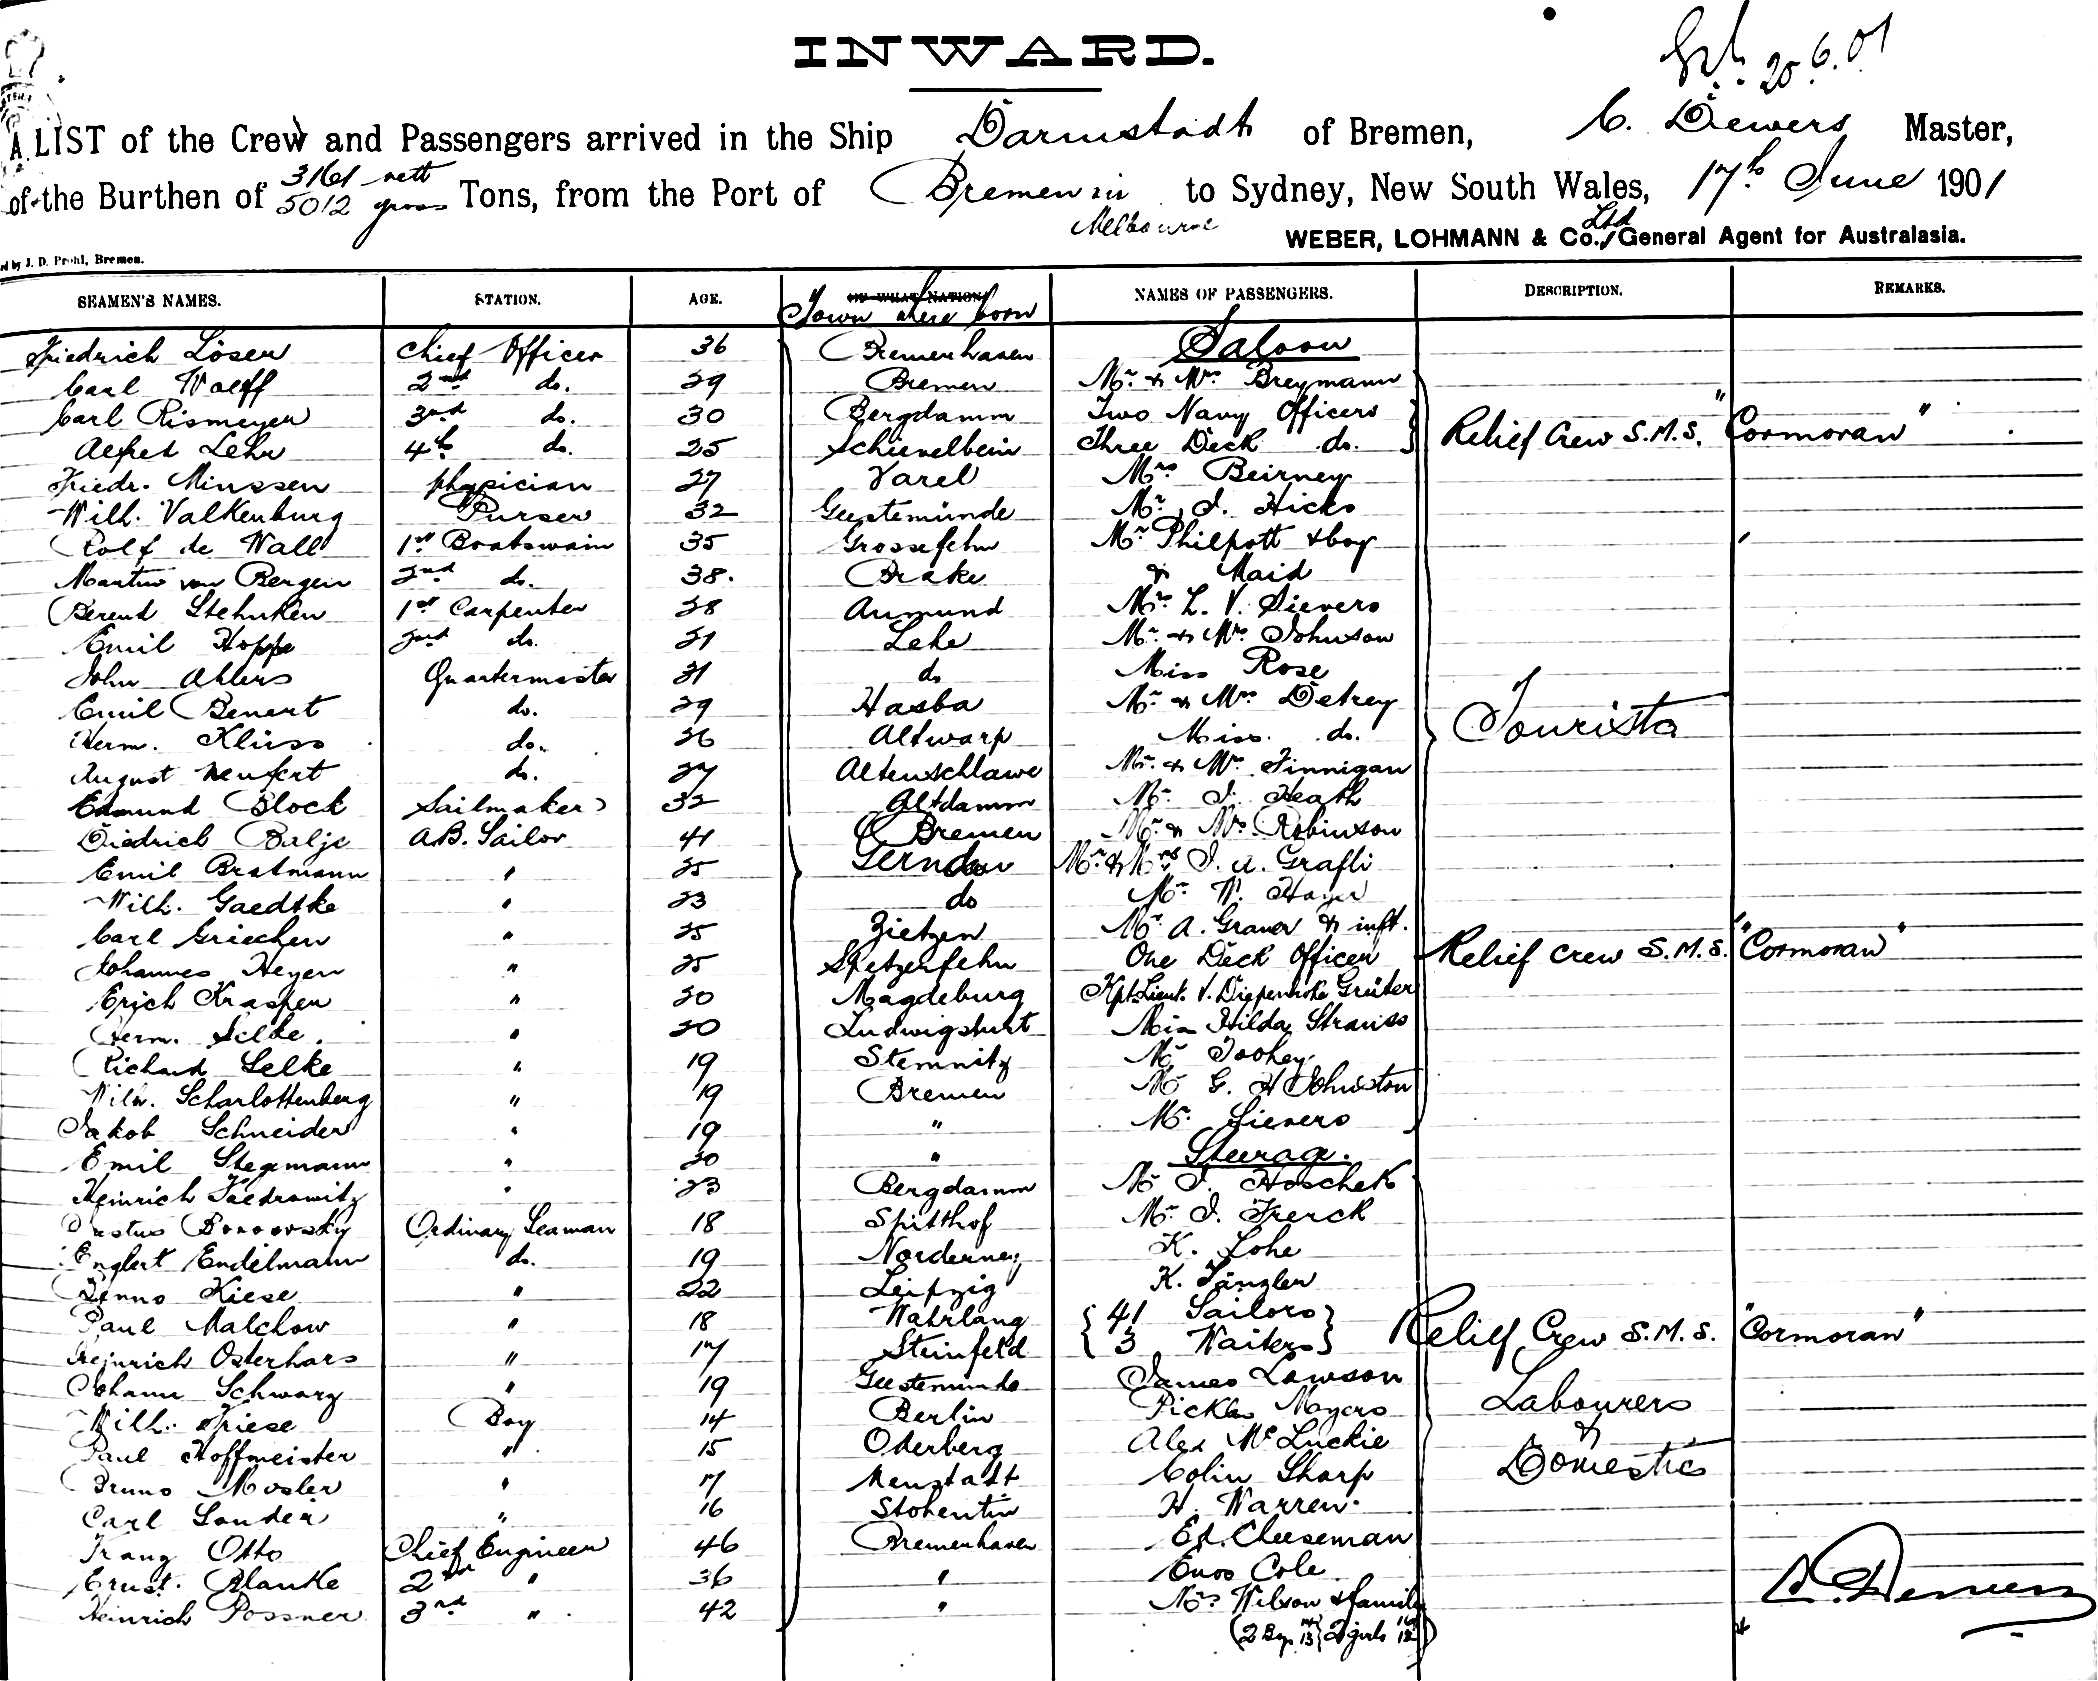 INWARD.
20.6.01
A LIST of the Crew and Passengers arrived in the Ship Darmstadt of Bremen, C. Dewers Master,
of the Burthen of 3161 nett 5012 gross Tons, from the Port of Bremen via Melbourne to Sydney, New South Wales, 17th June 1901
WEBER, LOHMANN & Co., Ltd General Agent for Australasia.
by J. D. Prohl, Bremen.
SEAMEN'S NAMES. STATION. AGE. OF WHAT NATION. Town where born NAMES OF PASSENGERS. DESCRIPTION. REMARKS.
Friedrich Löser Chief Officer 36 Bremerhaven Saloon
Carl Wolff 2nd do. 29 Bremen Mr. & Mrs. Breymann
Carl Rismeyer 3rd do. 30 Bergdamm Two Navy Officers
Alfred Lehr 4th do. 25 Schievelbein Three Deck do. Relief Crew S.M.S. "Cormoran"
Friedr. Minssen physician 27 Varel Mrs Beirney
Wilh. Valkenburg Purser 32 Geestemünde Mr. J. Hicks
Rolf de Wall 1st Boatswain 35 Grossefehn Mr. Philpott & boy
Martin von Bergen 2nd do. 38. Brake & Maid
Berend Stehnken 1st Carpenter 28 Aumund Mrs L. V. Sievers
Emil Hoppe 2nd do. 21 Lehe Mr. & Mrs. Johnson
John Ahlers Quartermaster 31 do Miss Rose
Emil Benert do. 29 Hasba Mr. & Mrs Detrey
Herm. Klüss do. 26 Altwarp Miss. do. Tourists
August Neufert do. 27 Altenschlawe Mr. & Mrs. Finnigan
Edmund Block Sailmaker 32 Altdamm Mr. J. Heath
Diedrich Balje A.B. Sailor 41 Bremen Mr. & Mrs. Robinson
Emil Bratmann " 25 Mr. & Mrs J. A. Grafli
Wilh. Gaedtke " 23 do Mr. W.
Carl Griechen " 25 Zietzen Mr. A. Graner & inft.
Johannes Heyen " 25 Spetzerfehn One Deck Officer Relief crew S.M.S. "Cormoran"
Erich Kraspen " 20 Magdeburg Kpt. Lieut. v. Grüter
Herm. Selke. " 20 Ludwigslust Miss Hilda Strauss
Richard Selke " 19 Stemnitz Mr Toohey
Wilh. Scharlottenberg " 19 Bremen Mr G. H Johnston
Jakob Schneider " 19 " Mr. Sievers
Emil Stegmann " 20 " Steerage.
Heinrich " 23 Bergdamm Mr J. Hoschek
Borowsky Ordinary Seaman 18 Spitthof Mr. J. Frerck
Englert Endelmann do. 19 Norderney K. Lohe
Benno Kiese " 22 Leipzig K. Tänzler
Paul Malchow " 18 Wahrlang 41 Sailors
Heinrich Osterhars " 17 Steinfeld 3 Waiters Relief Crew S.M.S. "Cormoran"
Johann Schwarz " 19 Geestemünde James Lawson
Wilh. Friese Boy 14 Berlin Pickles Myers Labourers
Paul Hoffmeister " 15 Oderberg Alex McLuckie &
Bruno Mosler " 17 Neustadt Colin Sharp Domestics
Carl Sander " 16 Stohentin H. Warren.
Franz Otto Chief Engineer 46 Bremerhaven Ed. Cheeseman
Ernst. Blanke 2nd " 36 " Enos Cole
Heinrich Possner 3rd " 42 " Mrs Wilson & family
(2 Boys 13 2 girls 12)
C. Dewers